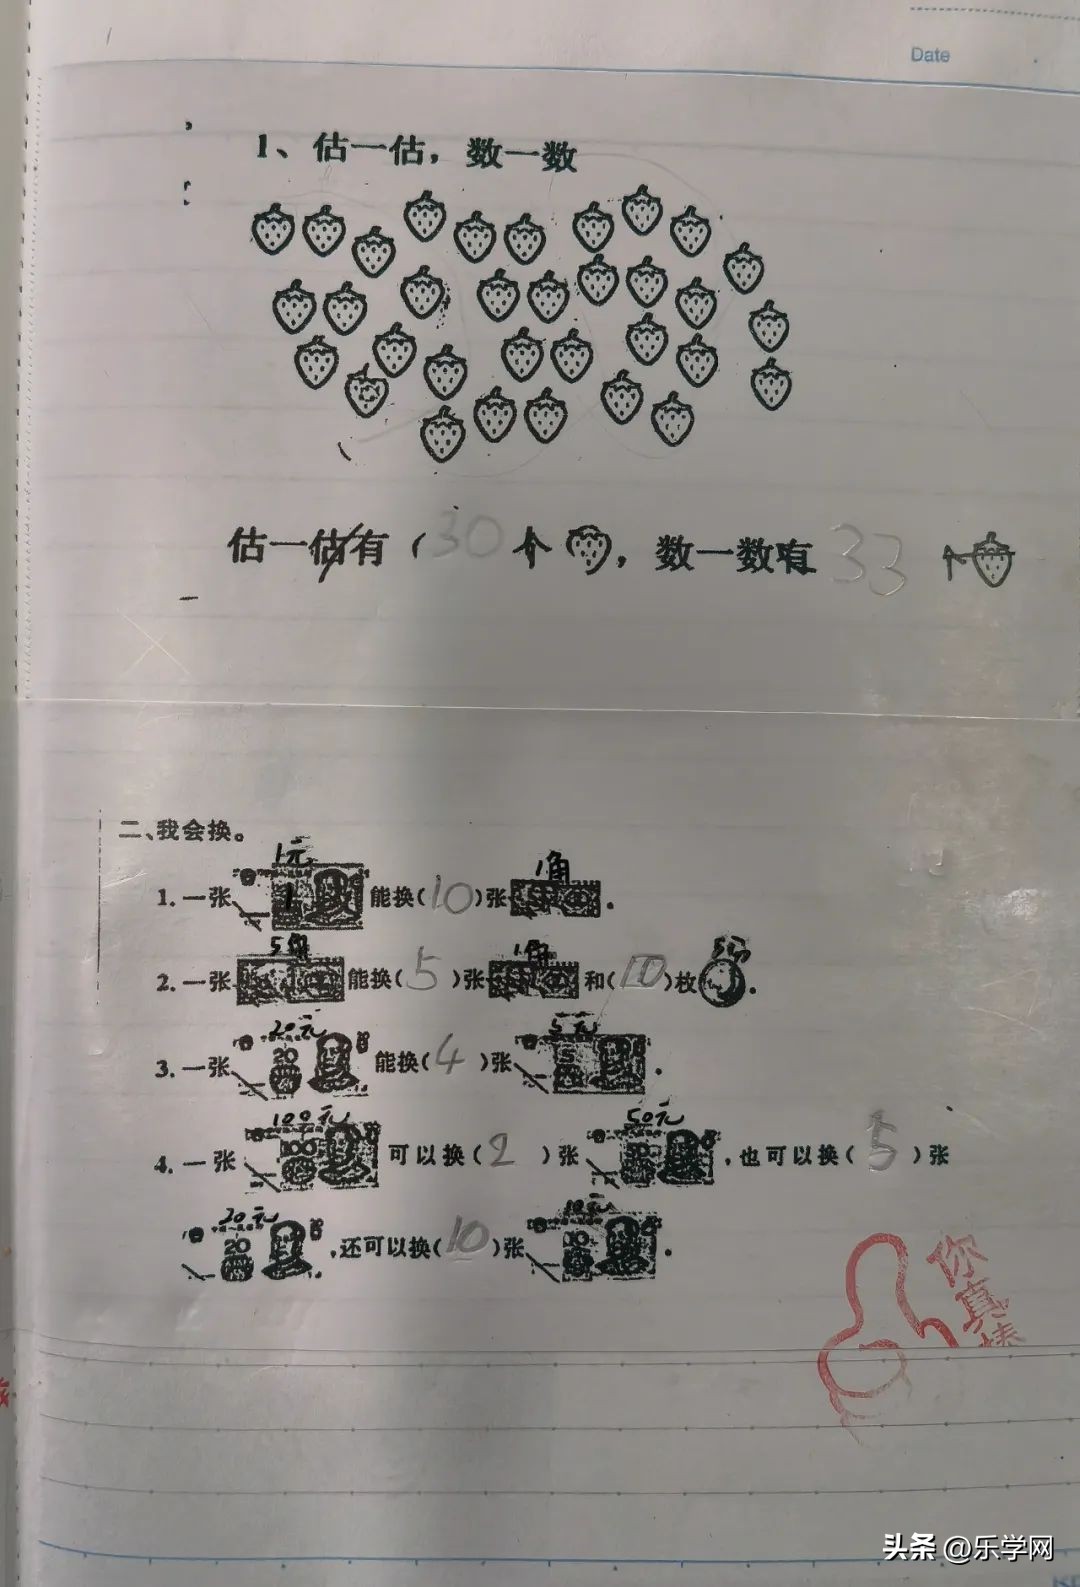 Date
1、估一估，数一数
估一估有（30个，数一数有33个
二、我会换。
1元 1角
1.一张 1 能换(10)张.
5角 1角 5分
2.一张能换(5)张和(10)枚.
20元 5元
3.一张 20 能换(4)张 5.
100元 50元
4.一张 100 可以换(2)张 50,也可以换(5)张
20元 10元
20,还可以换(10)张 10.
你真棒
头条 @乐学网